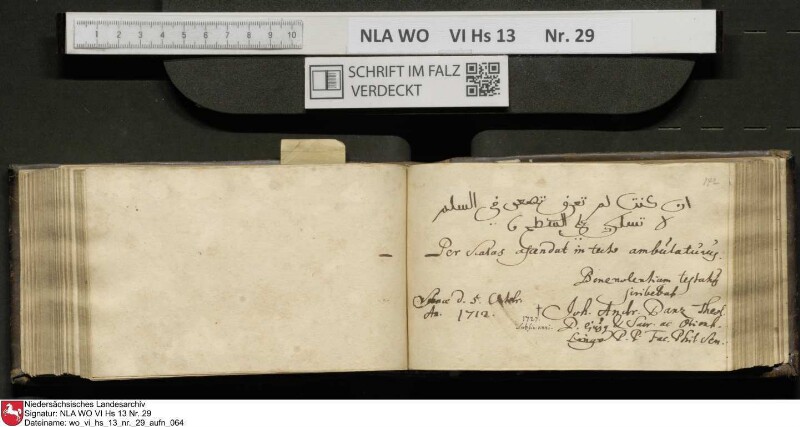 1 2 3 4 5 6 7 8 9 10
NLA WO VI Hs 13 Nr. 29
SCHRIFT IM FALZ
VERDECKT
142
ان كنت لم تعرف تصعى في السلم
لا تسلك
Per Scalas ascendat in tecto ambulaturus.
Benevolentiam testatus
scribebat
Jenae d. 5. Octobr.
An. 1712.
† Joh. Andr. Danz Theol
1727.
D. & Sacr. ac Orient.
Lingv. P. P. Fac. Phil. Sen.
Niedersächsisches Landesarchiv
Signatur: NLA WO VI Hs 13 Nr. 29
Dateiname: wo_vi_hs_13_nr._29_aufn_064